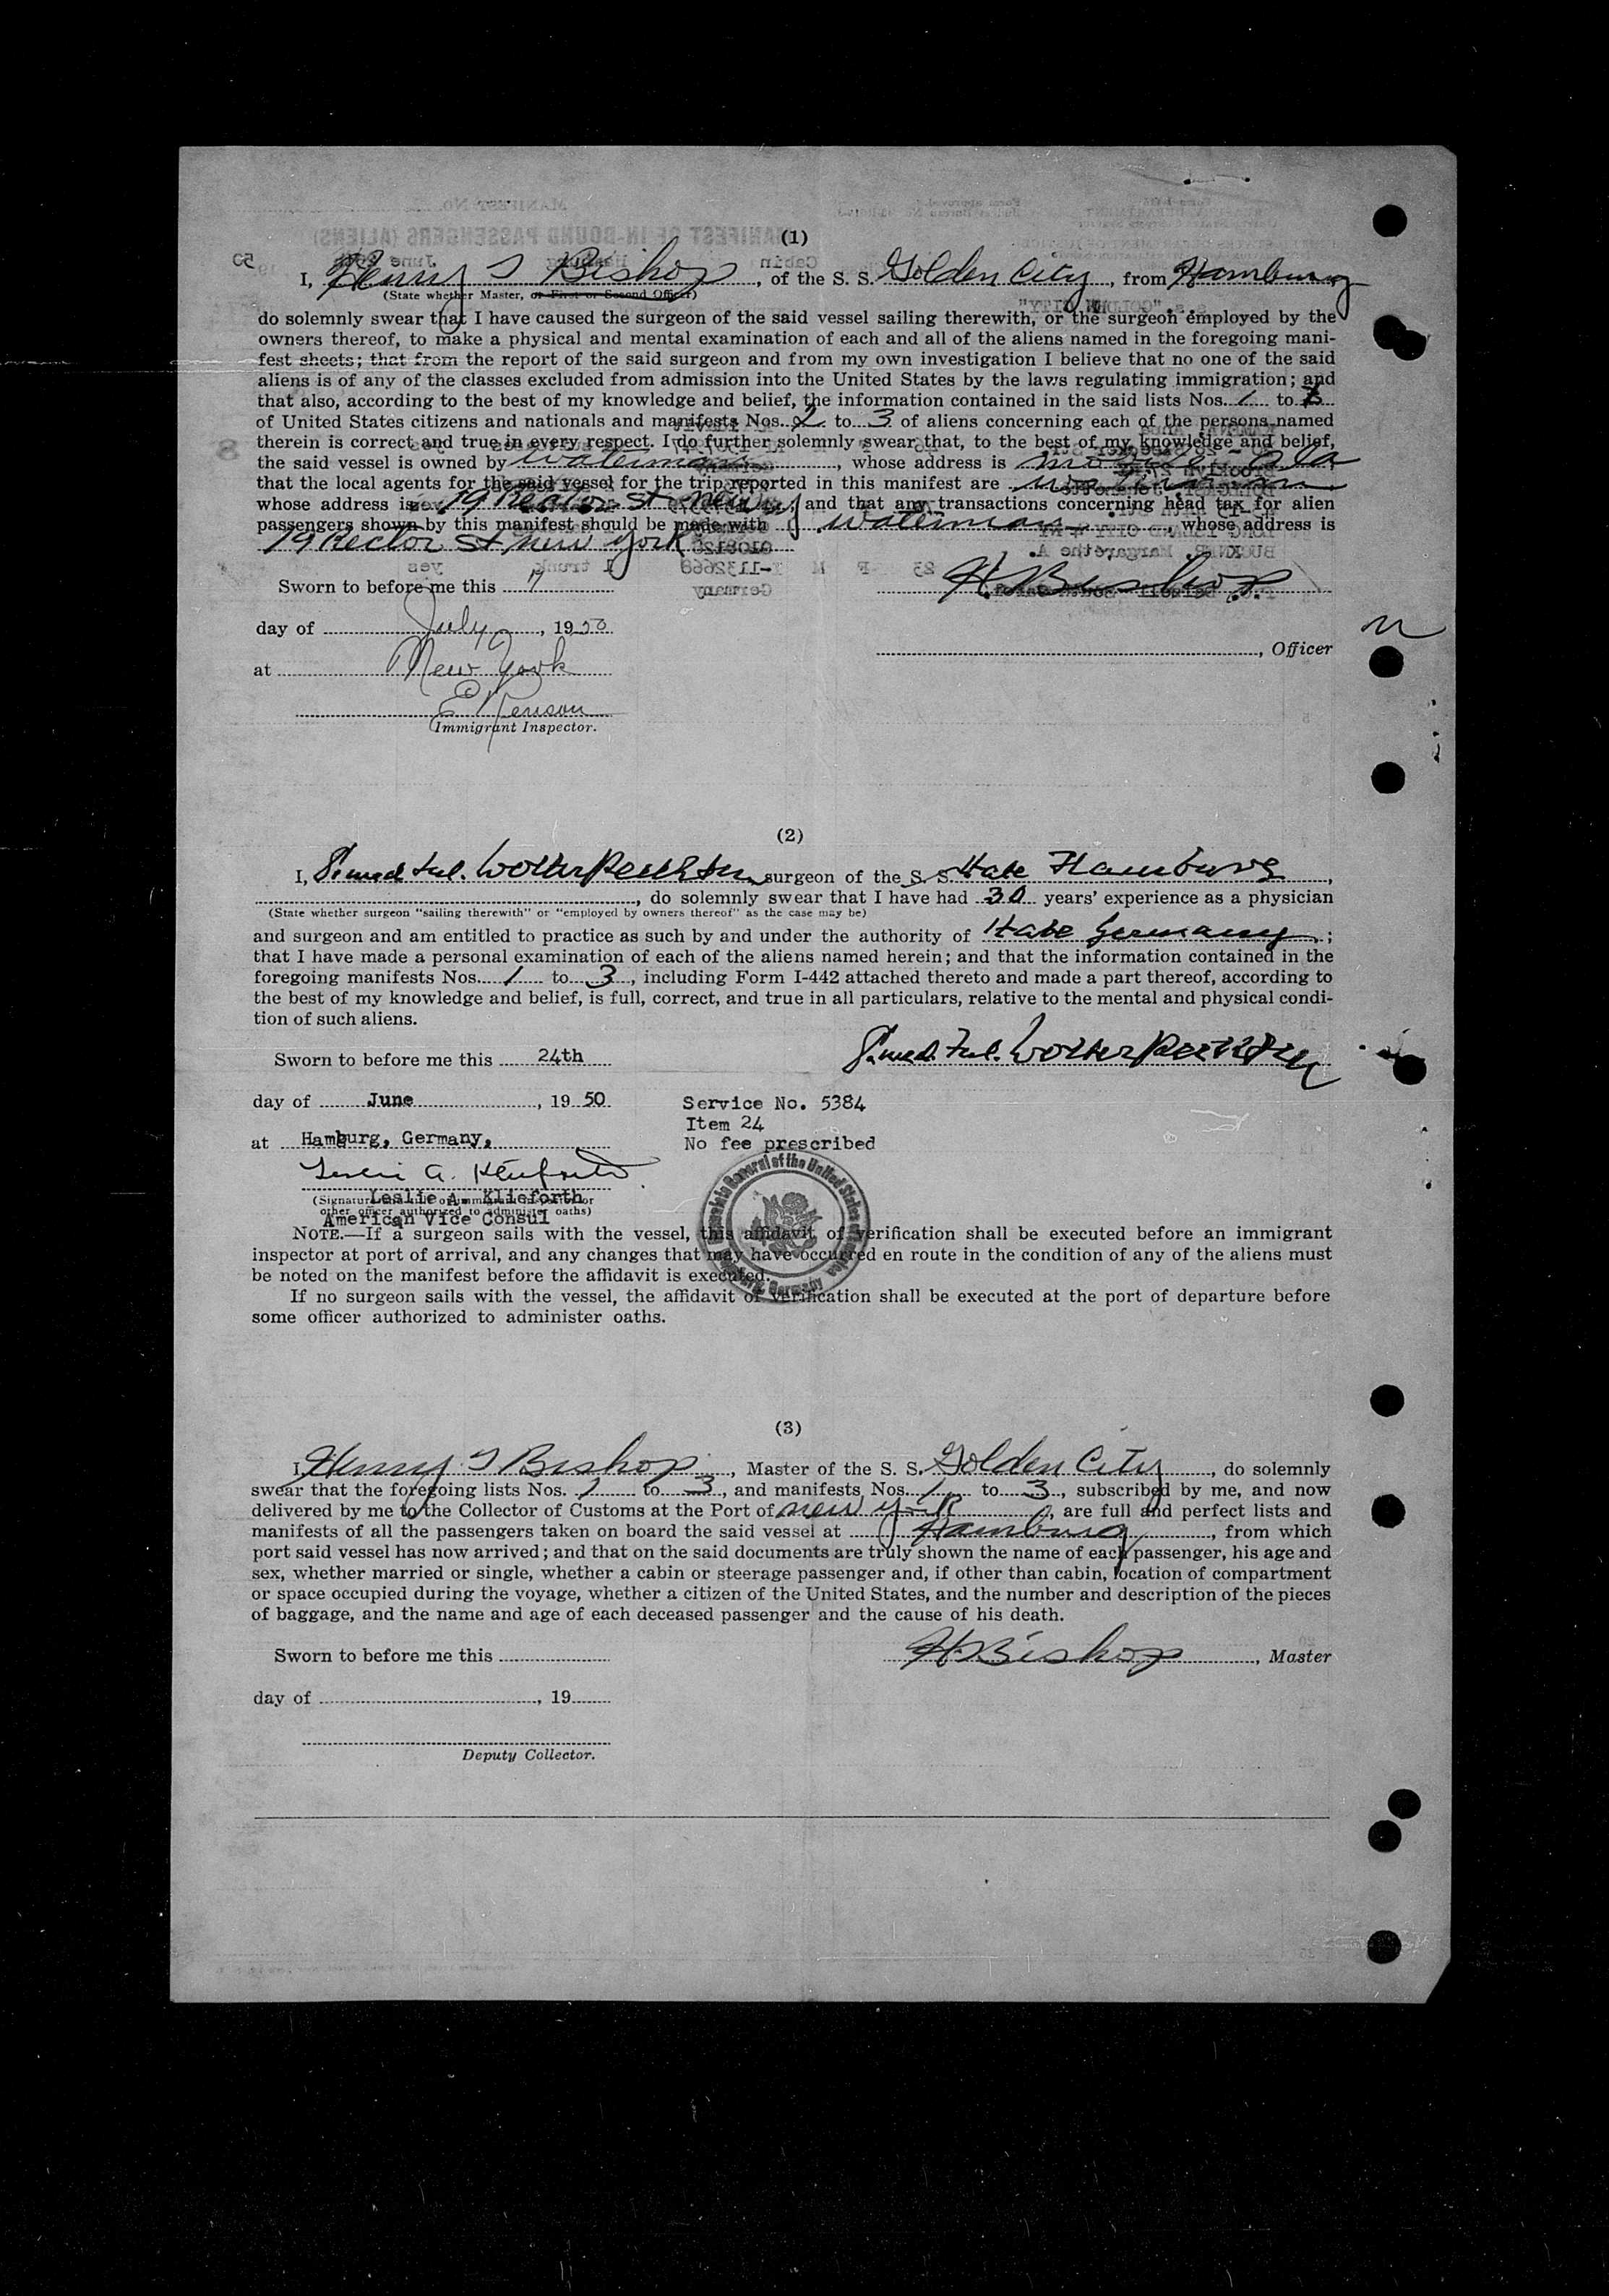 (1)
I, Henry S Bishop, of the S. S. Golden City, from Hamburg
(State whether Master, or First or Second Officer)
do solemnly swear that I have caused the surgeon of the said vessel sailing therewith, or the surgeon employed by the
owners thereof, to make a physical and mental examination of each and all of the aliens named in the foregoing mani-
fest sheets; that from the report of the said surgeon and from my own investigation I believe that no one of the said
aliens is of any of the classes excluded from admission into the United States by the laws regulating immigration; and
that also, according to the best of my knowledge and belief, the information contained in the said lists Nos. 1 to
of United States citizens and nationals and manifests Nos. 2 to 3 of aliens concerning each of the persons named
therein is correct and true in every respect. I do further solemnly swear that, to the best of my knowledge and belief,
the said vessel is owned by Waterman, whose address is Mobile Ala
that the local agents for the said vessel for the trip reported in this manifest are Waterman
whose address is 19 Rector St New Y, and that any transactions concerning head tax for alien
passengers shown by this manifest should be made with Waterman, whose address is
19 Rector St New York
Sworn to before me this 17
H Bishop
day of July, 1950
, Officer
at New York
E Kenson
Immigrant Inspector.
(2)
I, surgeon of the S. S. State Hamburg,
, do solemnly swear that I have had 30 years' experience as a physician
(State whether surgeon "sailing therewith" or "employed by owners thereof" as the case may be)
and surgeon and am entitled to practice as such by and under the authority of State Germany;
that I have made a personal examination of each of the aliens named herein; and that the information contained in the
foregoing manifests Nos. 1 to 3, including Form I-442 attached thereto and made a part thereof, according to
the best of my knowledge and belief, is full, correct, and true in all particulars, relative to the mental and physical condi-
tion of such aliens.
Sworn to before me this 24th
day of June, 19 50
Service No. 5384
Item 24
at Hamburg, Germany,
No fee prescribed
Leslie A. Klieforth
(Signature and title of immigrant inspector or
Leslie A. Klieforth
other officer authorized to administer oaths)
American Vice Consul
NOTE.—If a surgeon sails with the vessel, this affidavit of verification shall be executed before an immigrant
inspector at port of arrival, and any changes that may have occurred en route in the condition of any of the aliens must
be noted on the manifest before the affidavit is executed.
If no surgeon sails with the vessel, the affidavit of verification shall be executed at the port of departure before
some officer authorized to administer oaths.
(3)
I, Henry S Bishop, Master of the S. S. Golden City, do solemnly
swear that the foregoing lists Nos. 1 to 3, and manifests Nos. 1 to 3, subscribed by me, and now
delivered by me to the Collector of Customs at the Port of New York, are full and perfect lists and
manifests of all the passengers taken on board the said vessel at Hamburg, from which
port said vessel has now arrived; and that on the said documents are truly shown the name of each passenger, his age and
sex, whether married or single, whether a cabin or steerage passenger and, if other than cabin, location of compartment
or space occupied during the voyage, whether a citizen of the United States, and the number and description of the pieces
of baggage, and the name and age of each deceased passenger and the cause of his death.
Sworn to before me this
H Bishop, Master
day of , 19
Deputy Collector.